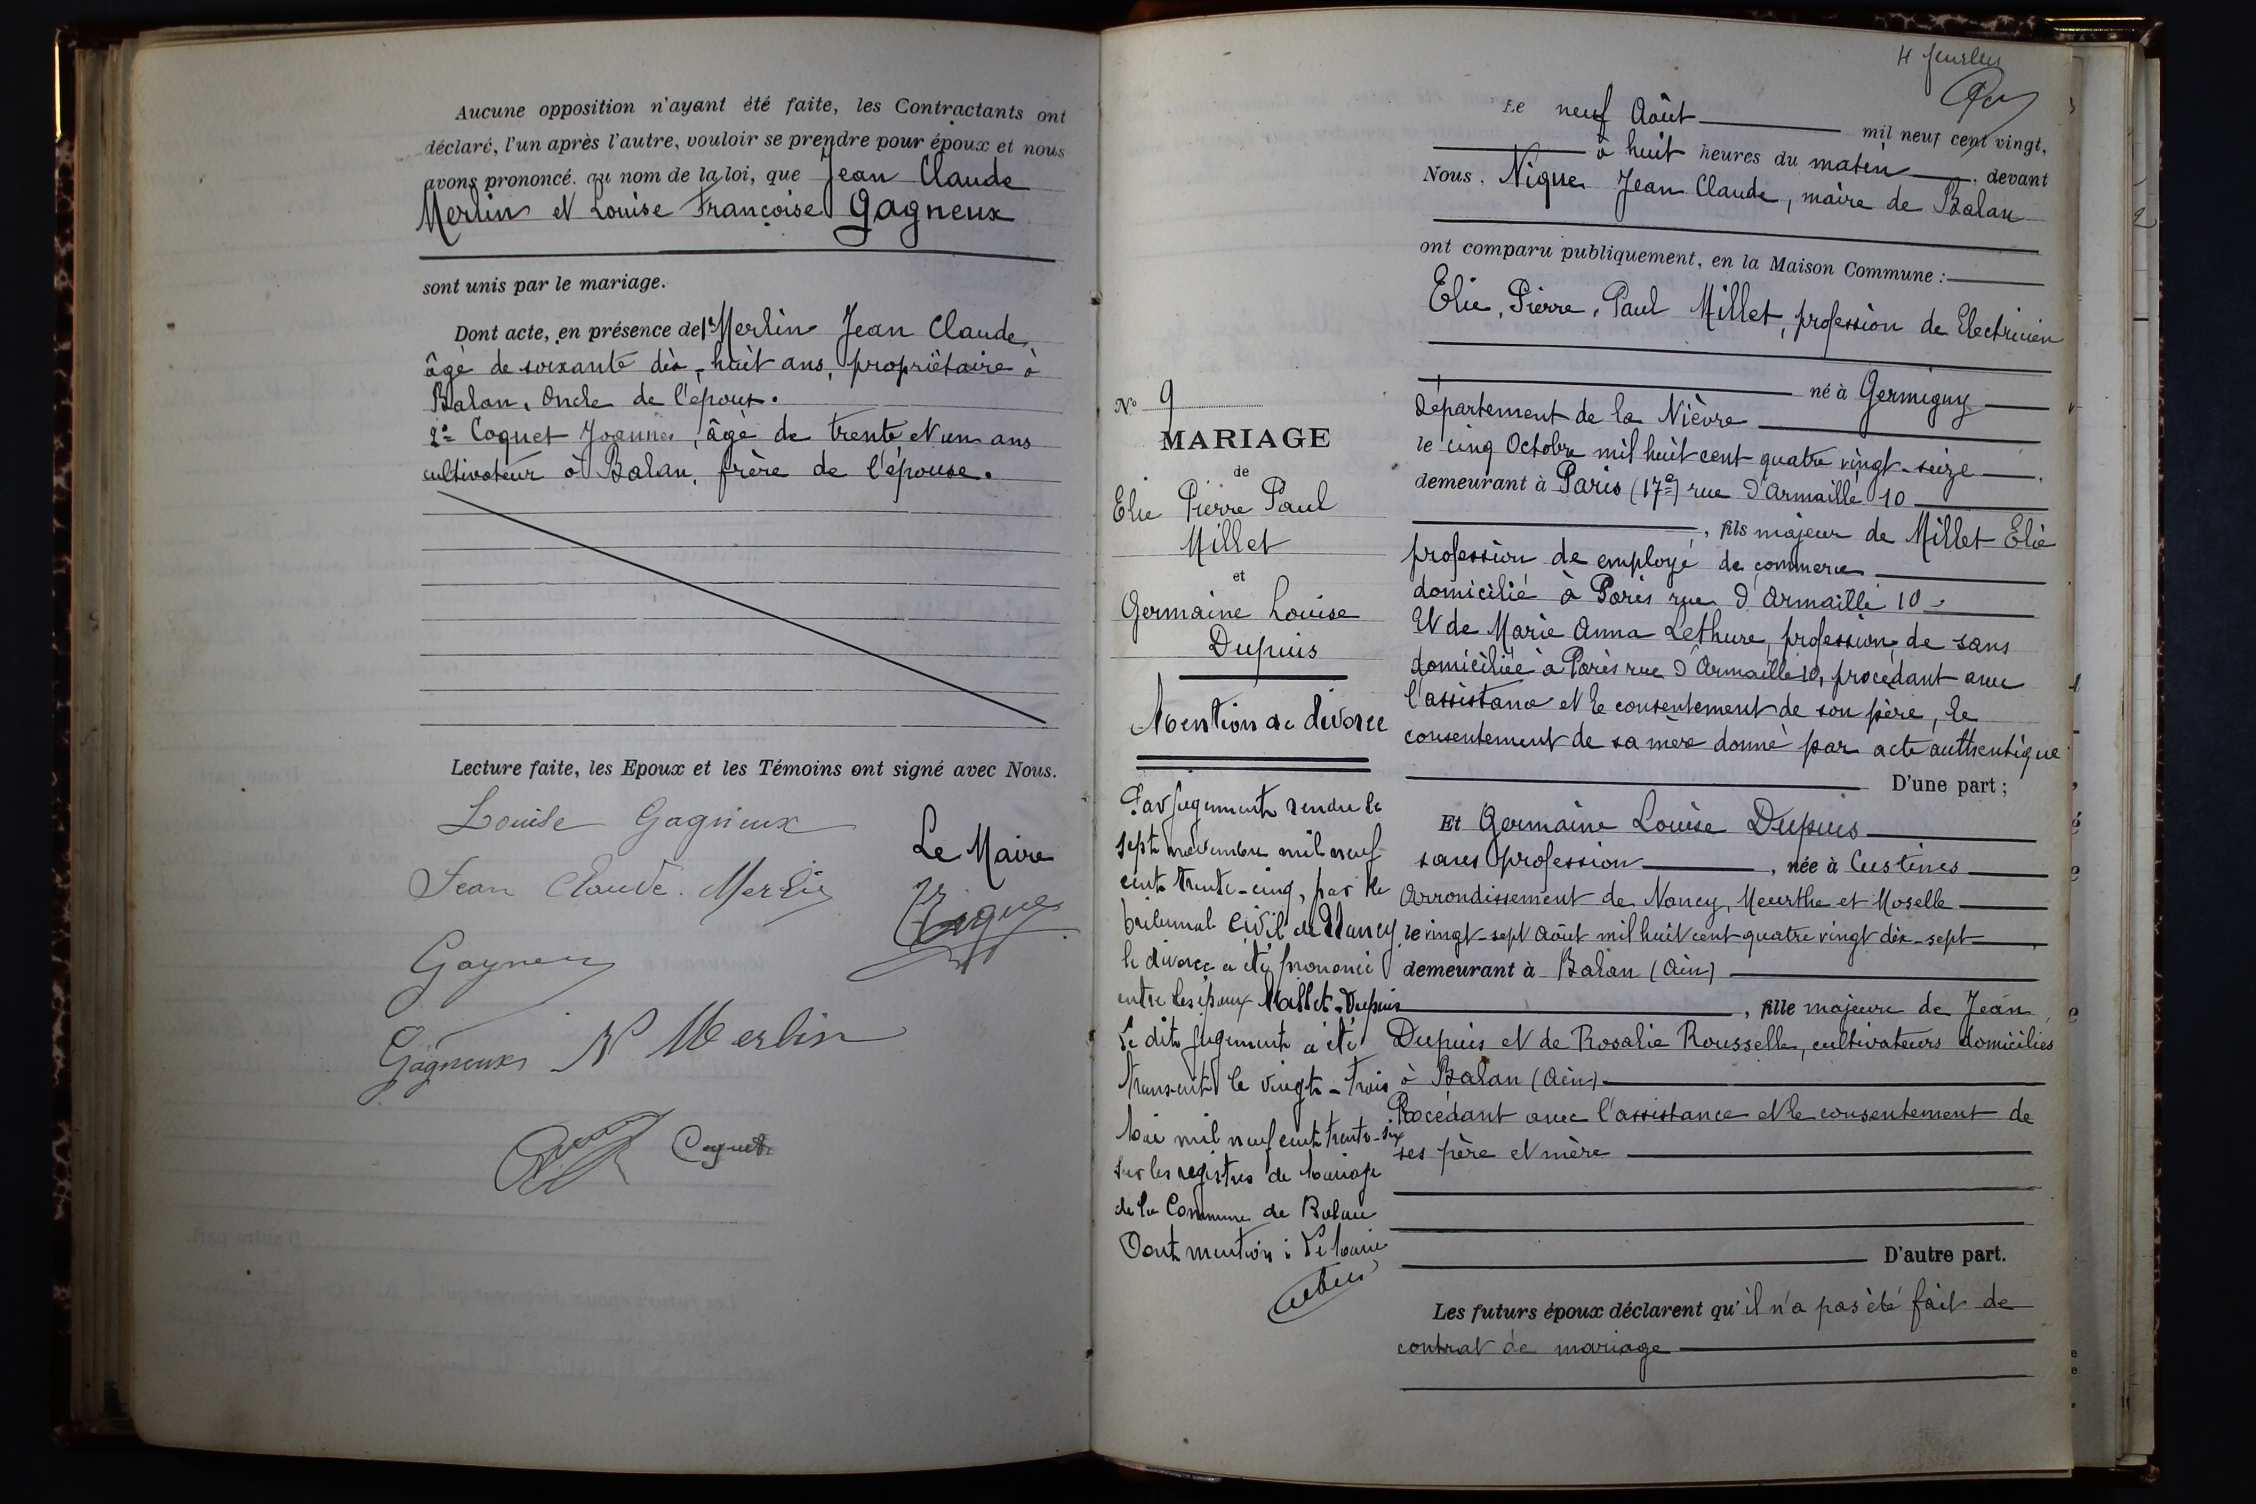 Aucune opposition n'ayant été faite, les Contractants ont
déclaré, l'un après l'autre, vouloir se prendre pour époux et nous
avons prononcé, au nom de la loi, que Jean Claude
Merlin et Louise Françoise Gagneux
sont unis par le mariage.
Dont acte, en présence de 1º Merlin Jean Claude,
âgé de soixante dix-huit ans, propriétaire à
Balan, Oncle de l'époux.
2º Coquet Joannes, âgé de trente et un ans
cultivateur à Balan, frère de l'épouse.
Lecture faite, les Epoux et les Témoins ont signé avec Nous.
Louise Gagneux
Le Maire
Jean Claude Merlin
Nique
Gagneux
Gagneux Merlin
Coquet
4 feuillets
Le neuf Août mil neuf cent vingt,
à huit heures du matin, devant
Nous, Nique Jean Claude, maire de Balan
ont comparu publiquement, en la Maison Commune :
Elie, Pierre, Paul Millet, profession de Electricien
né à Germigny
Département de la Nièvre
le cinq Octobre mil huit cent quatre vingt-seize,
demeurant à Paris (17e) rue d'Armaillé 10
, fils majeur de Millet Elie
profession de employé de commerce
domicilié à Paris rue d'Armaillé 10
Et de Marie Anna Lethure, profession de sans
domiciliée à Paris rue d'Armaillé 10, procédant avec
l'assistance et le consentement de son père, le
consentement de sa mère donné par acte authentique
D'une part ;
Et Germaine Louise Dupuis
sans profession, née à Custines
Arrondissement de Nancy, Meurthe et Moselle
le vingt-sept Août mil huit cent quatre vingt dix-sept,
demeurant à Balan (Ain)
, fille majeure de Jean
Dupuis et de Rosalie Rousselle, cultivateurs domiciliés
à Balan (Ain)
Procédant avec l'assistance et le consentement de
ses père et mère
D'autre part.
Les futurs époux déclarent qu'il n'a pas été fait de
contrat de mariage
No 9
MARIAGE
de
Elie Pierre Paul
Millet
et
Germaine Louise
Dupuis
Mention de divorce
Par jugement rendu le
sept novembre mil neuf
cent trente-cinq, par le
tribunal civil de Nancy
le divorce a été prononcé
entre les époux Millet-Dupuis
Le dit jugement a été
transcrit le vingt-trois
Mai mil neuf cent trente-six
sur les registres de Mariage
de la Commune de Balan
Dont mention : Le Maire